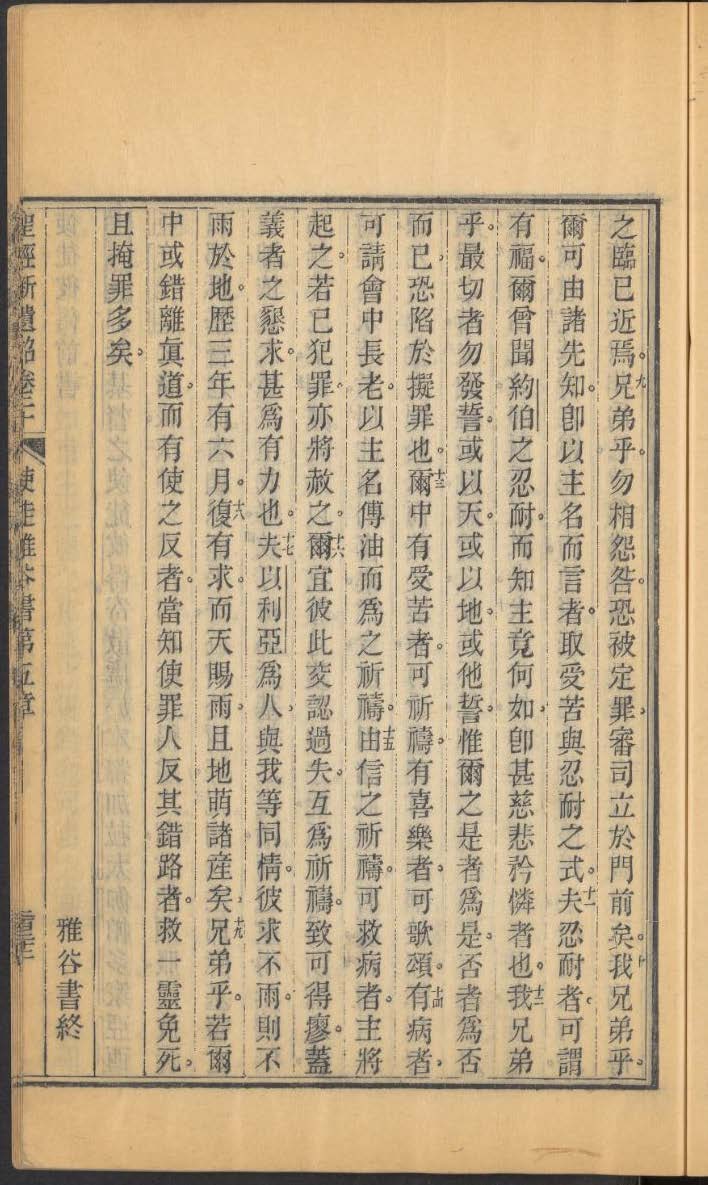 之臨已近焉。九兄弟乎。勿相怨咎。恐被定罪。審司立於門前矣。十我兄弟乎。
爾可由諸先知。卽以主名而言者。取受苦與忍耐之式。十一夫忍耐者。可謂
有福。爾曾聞約伯之忍耐。而知主竟何如。卽甚慈悲矜憐者也。十二我兄弟
乎。最切者勿發誓。或以天。或以地。或他誓。惟爾之是者爲是。否者爲否
而已。恐陷於擬罪也。十三爾中有受苦者。可祈禱。有喜樂者。可歌頌。十四有病者。
可請會中長老。以主名傅油而爲之祈禱。十五由信之祈禱。可救病者。主將
起之。若已犯罪。亦將赦之。十六爾宜彼此交認過失。互爲祈禱。致可得瘳。蓋
義者之懇求。甚爲有力也。十七夫以利亞爲人。與我等同情。彼求不雨。則不
雨於地。歷三年有六月。十八復有求。而天賜雨。且地萌諸產矣。十九兄弟乎。若爾
中或錯離眞道。而有使之反者。當知使罪人反其錯路者。救一靈免死。
且掩罪多矣。
雅谷書終
聖經新遺詔卷二十 使徒雅谷書第五章